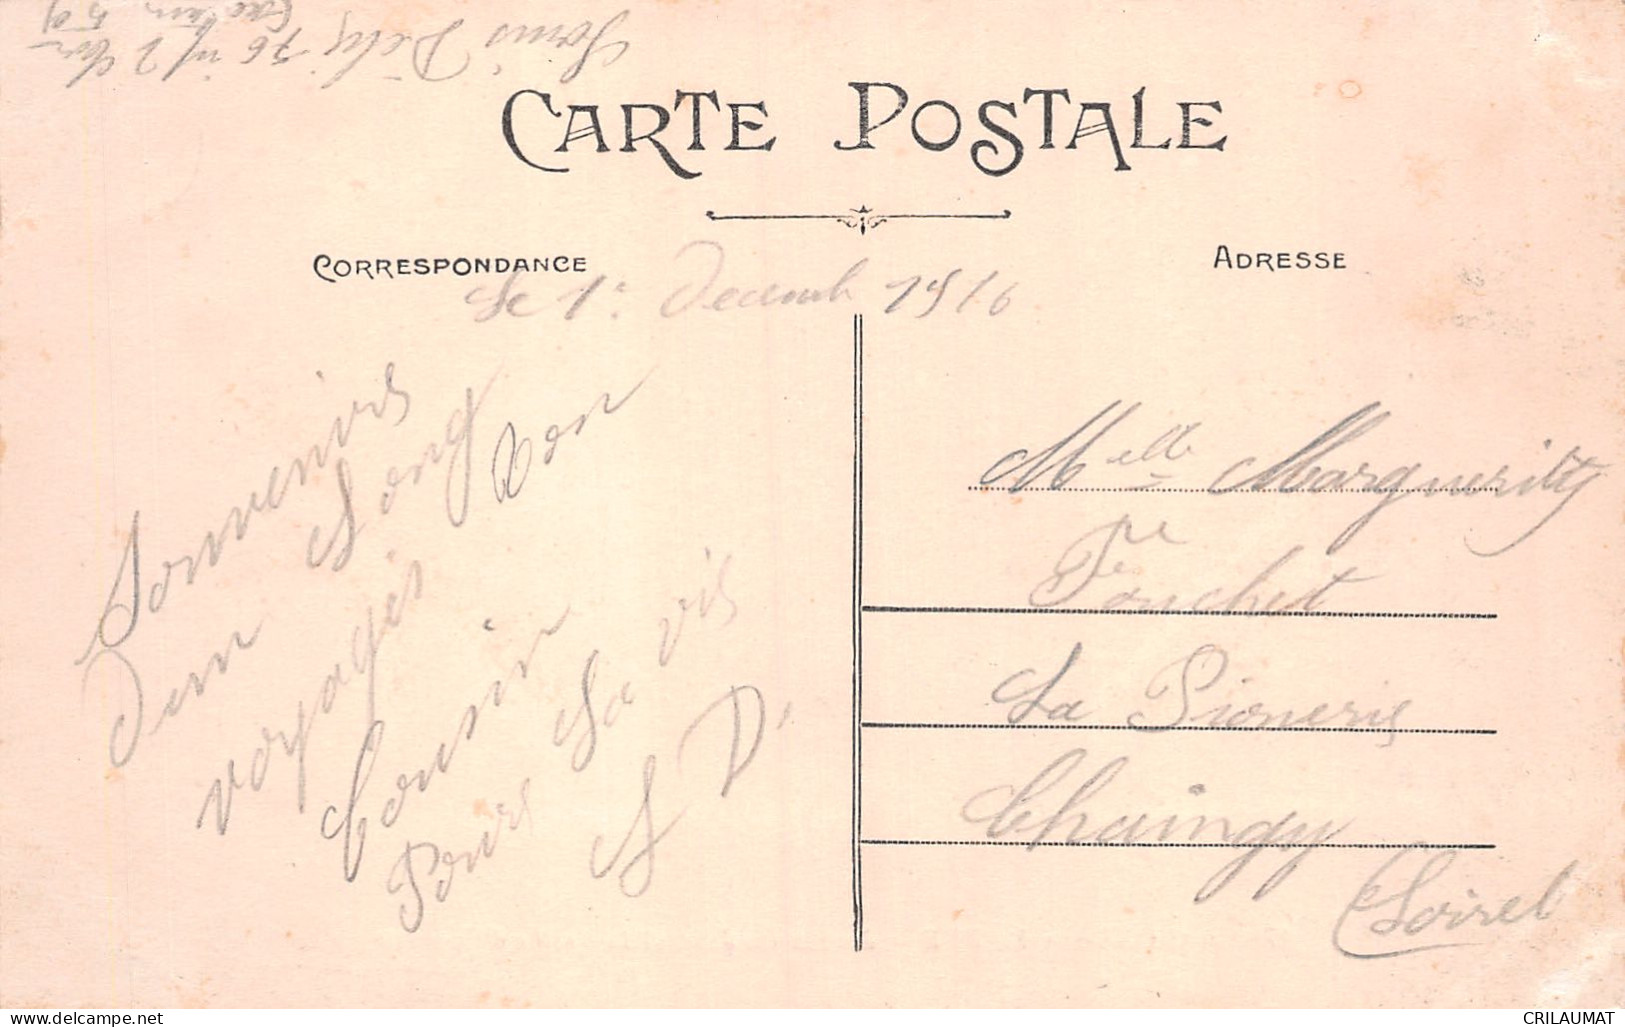 CARTE POSTALE
CORRESPONDANCE
ADRESSE
Le 1er Decemb 1916
Souvenirs
d'un Long
voyages ton
Cousin
Pour La vis
L D.
Melle Marguerite
Fouchet
La Pioneris
Chaingy
(Loiret
76 inf 2
CRILAUMAT